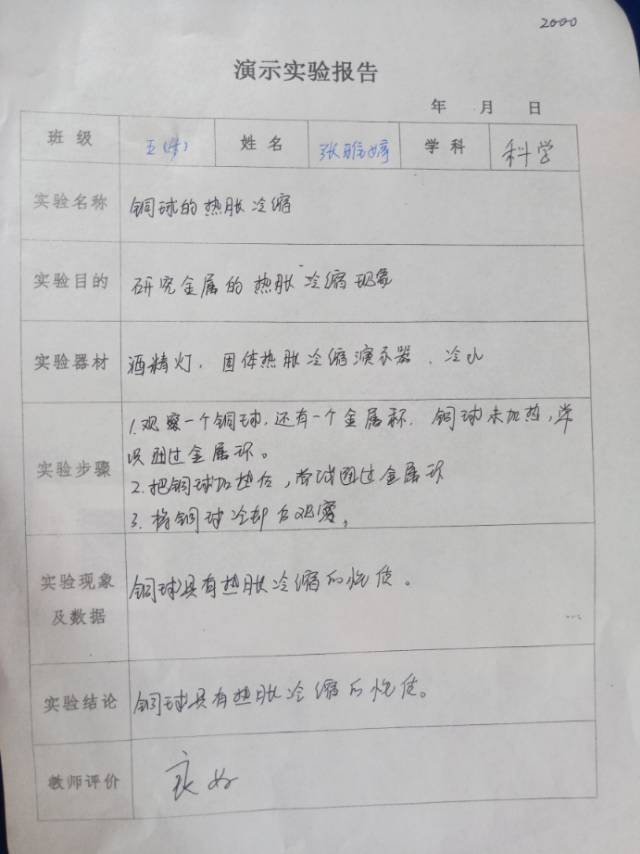 2000
演示实验报告
年 月 日
班级 五(4) 姓名 张雅婷 学科 科学
实验名称 铜球的热胀冷缩
实验目的 研究金属的热胀冷缩现象
实验器材 酒精灯、固体热胀冷缩演示器、冷水
实验步骤
1.观察一个铜球,还有一个金属环.铜球未加热,尝
试通过金属环。
2.把铜球加热后,尝试通过金属环
3.将铜球冷却后观察。
实验现象
及数据
铜球具有热胀冷缩的性质。
实验结论 铜球具有热胀冷缩的性质。
教师评价 良好